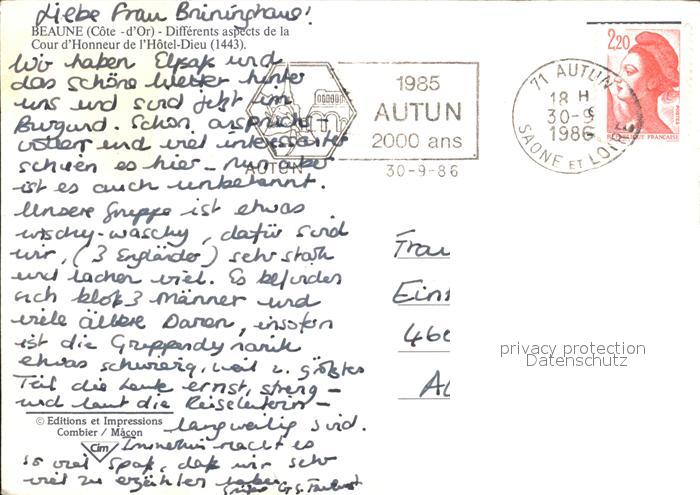 Liebe Frau Brüninghaus!
BEAUNE (Côte-d'Or) - Différents aspects de la
Cour d'Honneur de l'Hôtel-Dieu (1443).
Wir haben Elsaß und
das schöne Wetter hinter
uns und sind jetzt im
Burgund. Schon anspruchs-
voller und viel interessanter
schien es hier - nun aber
ist es auch unbekannt.
Unsere Gruppe ist etwas
wischy-waschy, dafür sind
wir, (3 Engländer) sehr stark
und lachen viel. Es befinden
sich bloß 3 Männer und
viele ältere Damen, insofern
ist die Gruppendynamik
etwas schwierig, weil z. größten
Teil die Leute ernst, streng -
und laut die Reiseleiterin -
langweilig sind.
Immerhin macht es
so viel Spaß, daß wir sehr
viel zu erzählen haben
Grüße G.S.
© Editions et Impressions
Combier / Mâcon
Cim
AUTUN
1985
AUTUN
2000 ans
30-9-86
71 AUTUN
18 H
30-9
1986
SAONE ET LOIRE
2,20
POSTES
REPUBLIQUE FRANÇAISE
Frau
Eins
466
privacy protection
Datenschutz